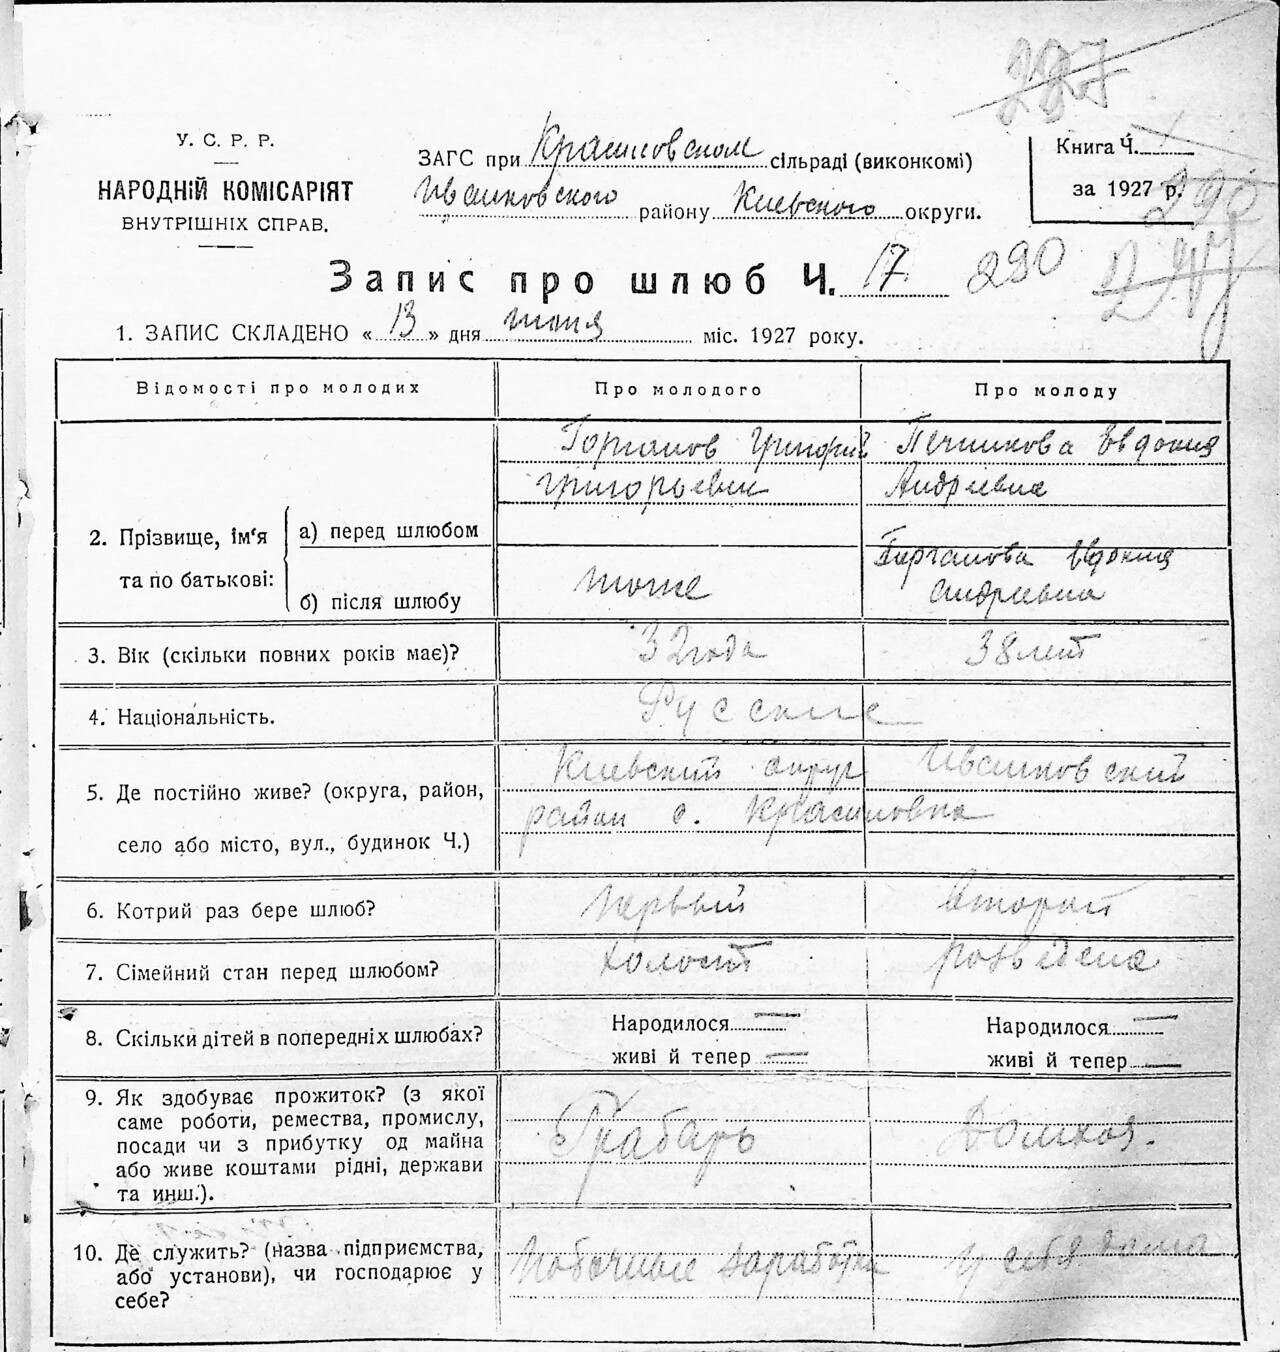 227
У. С. Р. Р.
НАРОДНІЙ КОМІСАРІЯТ
ВНУТРІШНІХ СПРАВ.
ЗАГС при Красиловском сільраді (виконкомі)
Иванковского району Киевского округи.
Книга Ч.
за 1927 р.
290
Запис про шлюб Ч. 17. 290
1. ЗАПИС СКЛАДЕНО « 13 » дня июня міс. 1927 року.
Відомості про молодих Про молодого Про молоду
2. Прізвище, ім'я та по батькові:
а) перед шлюбом
Григорий Евдокия
Григорьевич Андреевна
б) після шлюбу
тоже Евдокия
Андреевна
3. Вік (скільки повних років має)? 32 года 38 лет
4. Національність. Русские
5. Де постійно живе? (округа, район,
село або місто, вул., будинок Ч.)
Киевский округ Иванковский
район с. Красиловка
6. Котрий раз бере шлюб? первый второй
7. Сімейний стан перед шлюбом? холост розведена
8. Скільки дітей в попередніх шлюбах? Народилося — Народилося —
живі й тепер — живі й тепер —
9. Як здобуває прожиток? (з якої
саме роботи, ремества, промислу,
посади чи з прибутку од майна
або живе коштами рідні, держави
та инш.).
Грабарь Домхоз.
10. Де служить? (назва підприємства,
або установи), чи господарює у
себе?
Побочные заработки у себя дома